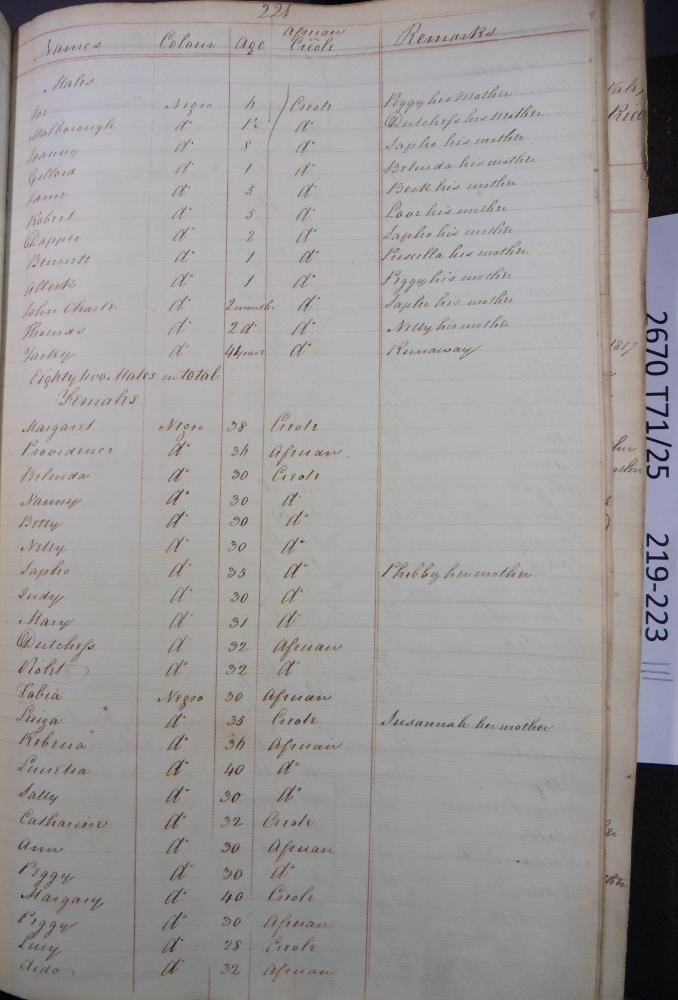 221
Names Colour Age African or Creole Remarks
Males
Joe Negro 4 Creole Peggy his Mother
Malborough do 1½ do Dutchess his Mother
Joanny do 8 do Sapho his mother
Gifford do 1 do Belinda his mother
Jamie do 5 do Beck his mother
Robert do 5 do Love his mother
Dapper do 2 do Sapho his mother
Bennett do 1 do Priscilla his mother
do 1 do Peggy his mother
John Charle do 2 months do Sapho his mother
Thomas do 2 do do Nelly his mother
Yacky do 44 years do Runaway
Eighty two Males in total
Females
Margaret Negro 38 Creole
Providence do 34 African
Belinda do 30 Creole
Nanny do 30 do
Betty do 30 do
Nelly do 30 do
Sapho do 35 do Phibby her mother
Judy do 30 do
Mary do 31 do
Dutchess do 32 African
Violet do 32 do
Negro 30 African
Luiza do 35 Creole Susannah her mother
do 34 African
Lucretia do 40 do
Sally do 30 do
Catharine do 32 Creole
Ann do 30 African
Peggy do 30 do
Margary do 40 Creole
Peggy do 30 African
Lucy do 28 Creole
Dido do 32 African
1817
2670 T71/25 219-223